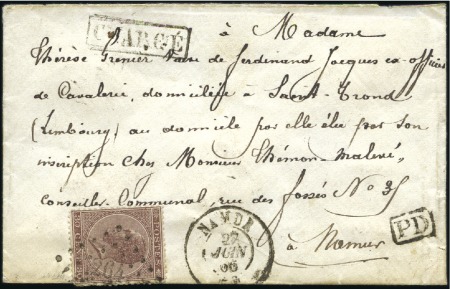 à Madame
CHARGÉ
Thérèse Grenier Veuve de Ferdinand Jacques ex-officier
de Cavalerie, domiciliée à Saint-Trond
(Limbourg) au domicile par elle élu par son
inscription chez Monsieur Thémon-
Conseiller Communal, rue des fossés No 35
à Namur
PD
NAMUR
27
JUIN
66
264